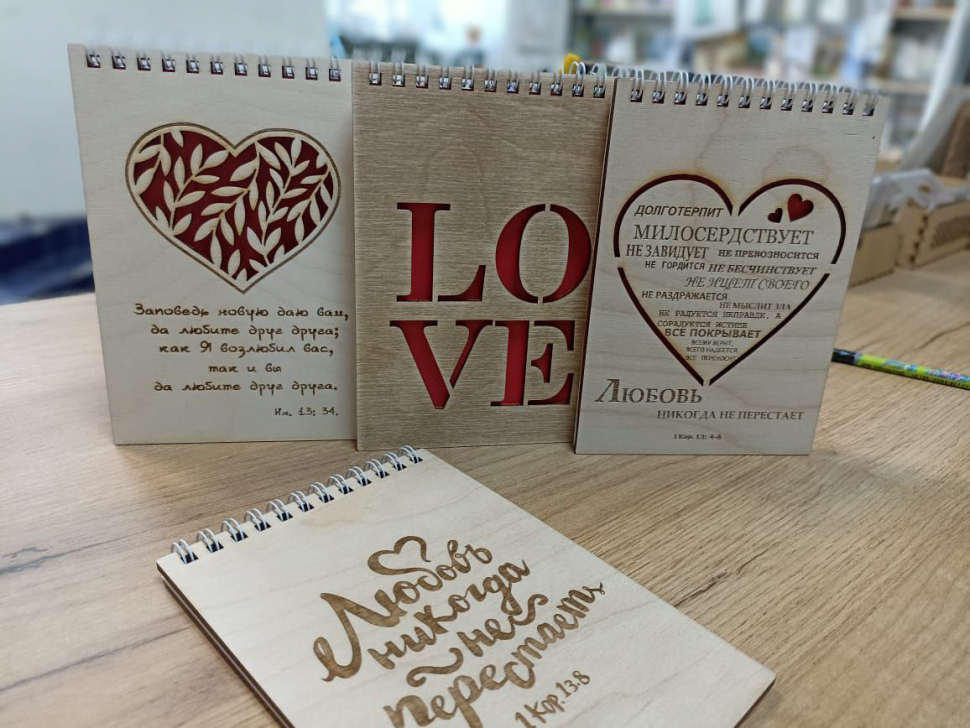 Заповедь новую даю вам,
да любите друг друга;
как Я возлюбил вас,
так и вы
да любите друг друга.
Ин. 13: 34.
LO
VE
ДОЛГОТЕРПИТ
МИЛОСЕРДСТВУЕТ
НЕ ЗАВИДУЕТ НЕ ПРЕВОЗНОСИТСЯ
НЕ ГОРДИТСЯ НЕ БЕСЧИНСТВУЕТ
НЕ ИЩЕТ СВОЕГО
НЕ РАЗДРАЖАЕТСЯ
НЕ МЫСЛИТ ЗЛА
НЕ РАДУЕТСЯ НЕПРАВДЕ, А
СОРАДУЕТСЯ ИСТИНЕ
ВСЕ ПОКРЫВАЕТ
ВСЕМУ ВЕРИТ,
ВСЕГО НАДЕЕТСЯ
ВСЕ ПЕРЕНОСИТ
ЛЮБОВЬ
НИКОГДА НЕ ПЕРЕСТАЕТ
1 Кор. 13: 4-8
Любовь
никогда
не
перестаёт
1 Кор. 13:8